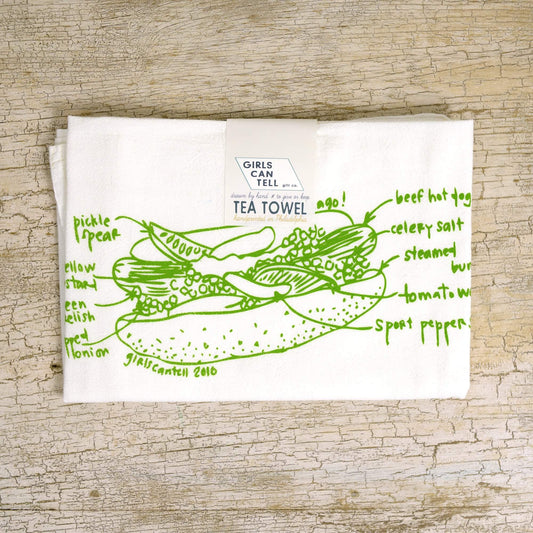 GIRLS
CAN
TELL
gift co.
drawn by hand & to give or keep
TEA TOWEL
handprinted in Philadelphia
ago!
beef hot dog
celery salt
steamed
bun
tomato w
sport pepper
pickle
spear
ellow
stard
een
elish
pped
onion
girlscantell 2010